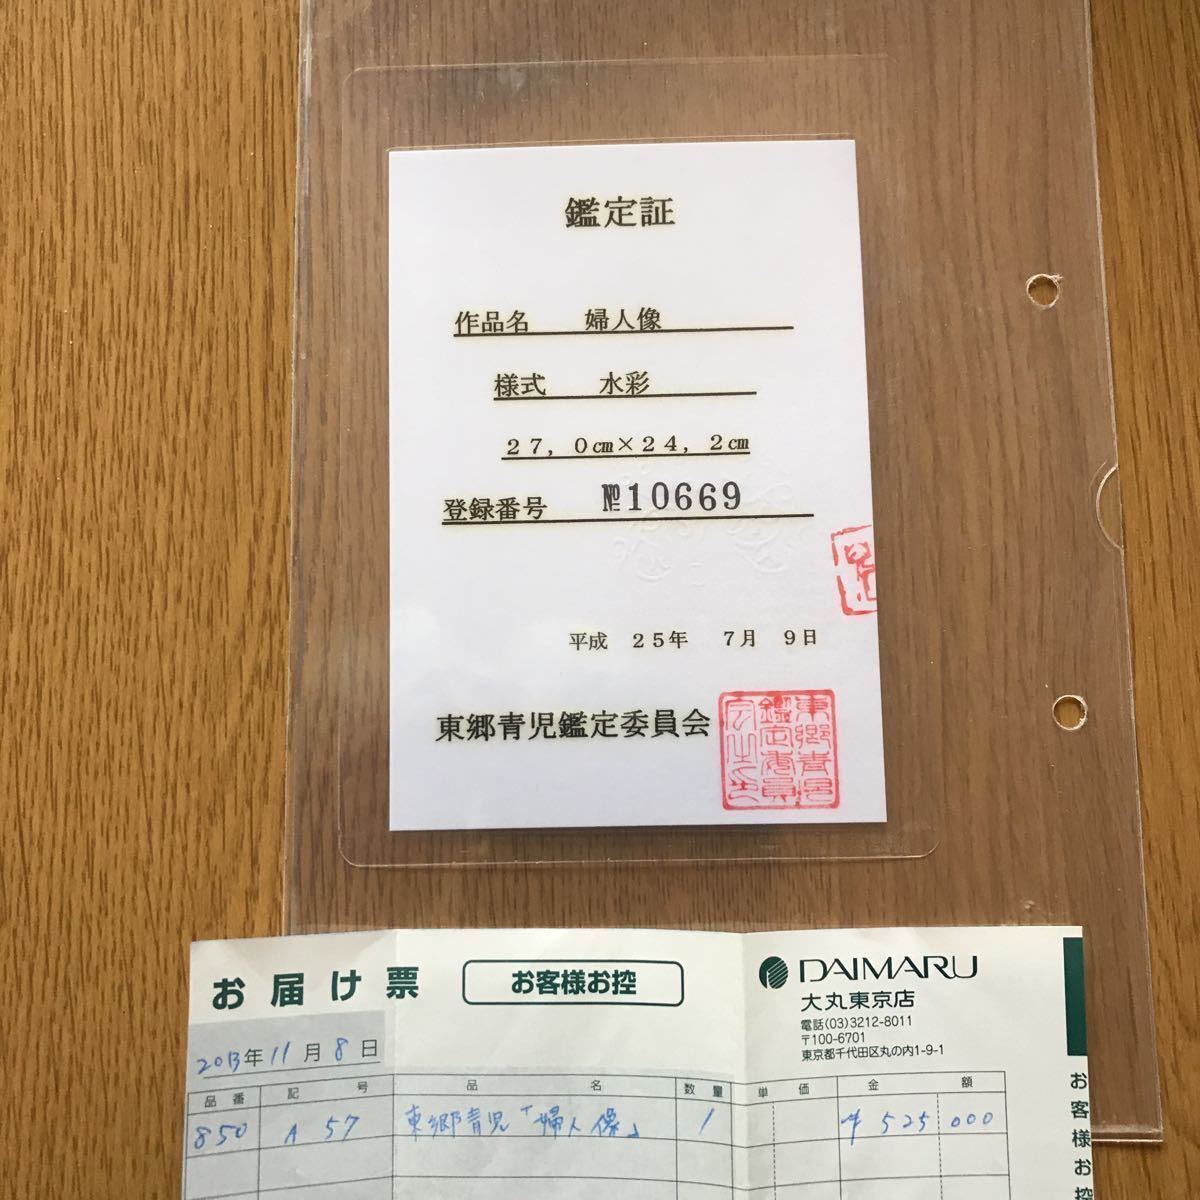 鑑定証
作品名 婦人像
様式 水彩
27,0㎝×24,2㎝
登録番号 №10669
平成 25年 7月 9日
東郷青児鑑定委員会
東郷青児鑑定委員会之印
お届け票
お客様お控
DAIMARU
大丸東京店
電話(03)3212-8011
〒100-6701
東京都千代田区丸の内1-9-1
2013年11月8日
品番 記号 品名 数量 単価 金額
850 A 57 東郷青児「婦人像」 1 ¥525000
お客様お控